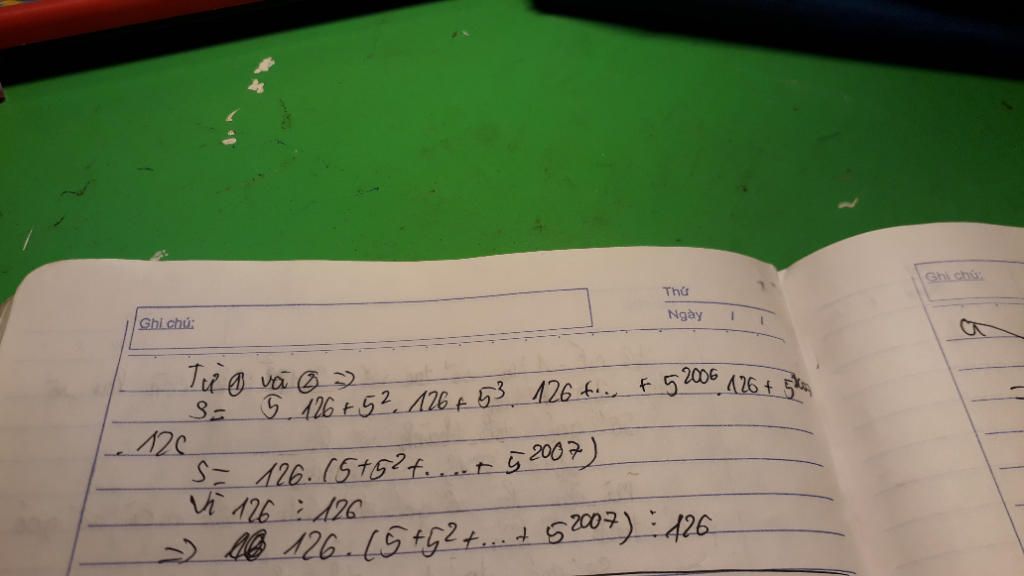 Ghi chú:
Thứ
Ngày / /
Từ ① và ② =>
S= 5.126+5².126+5³.126+...+5²⁰⁰⁶.126+5
.126
S= 126.(5+5²+....+5²⁰⁰⁷)
Vì 126 ⋮ 126
=> 126.(5+5²+...+5²⁰⁰⁷) ⋮ 126
Ghi chú:
a